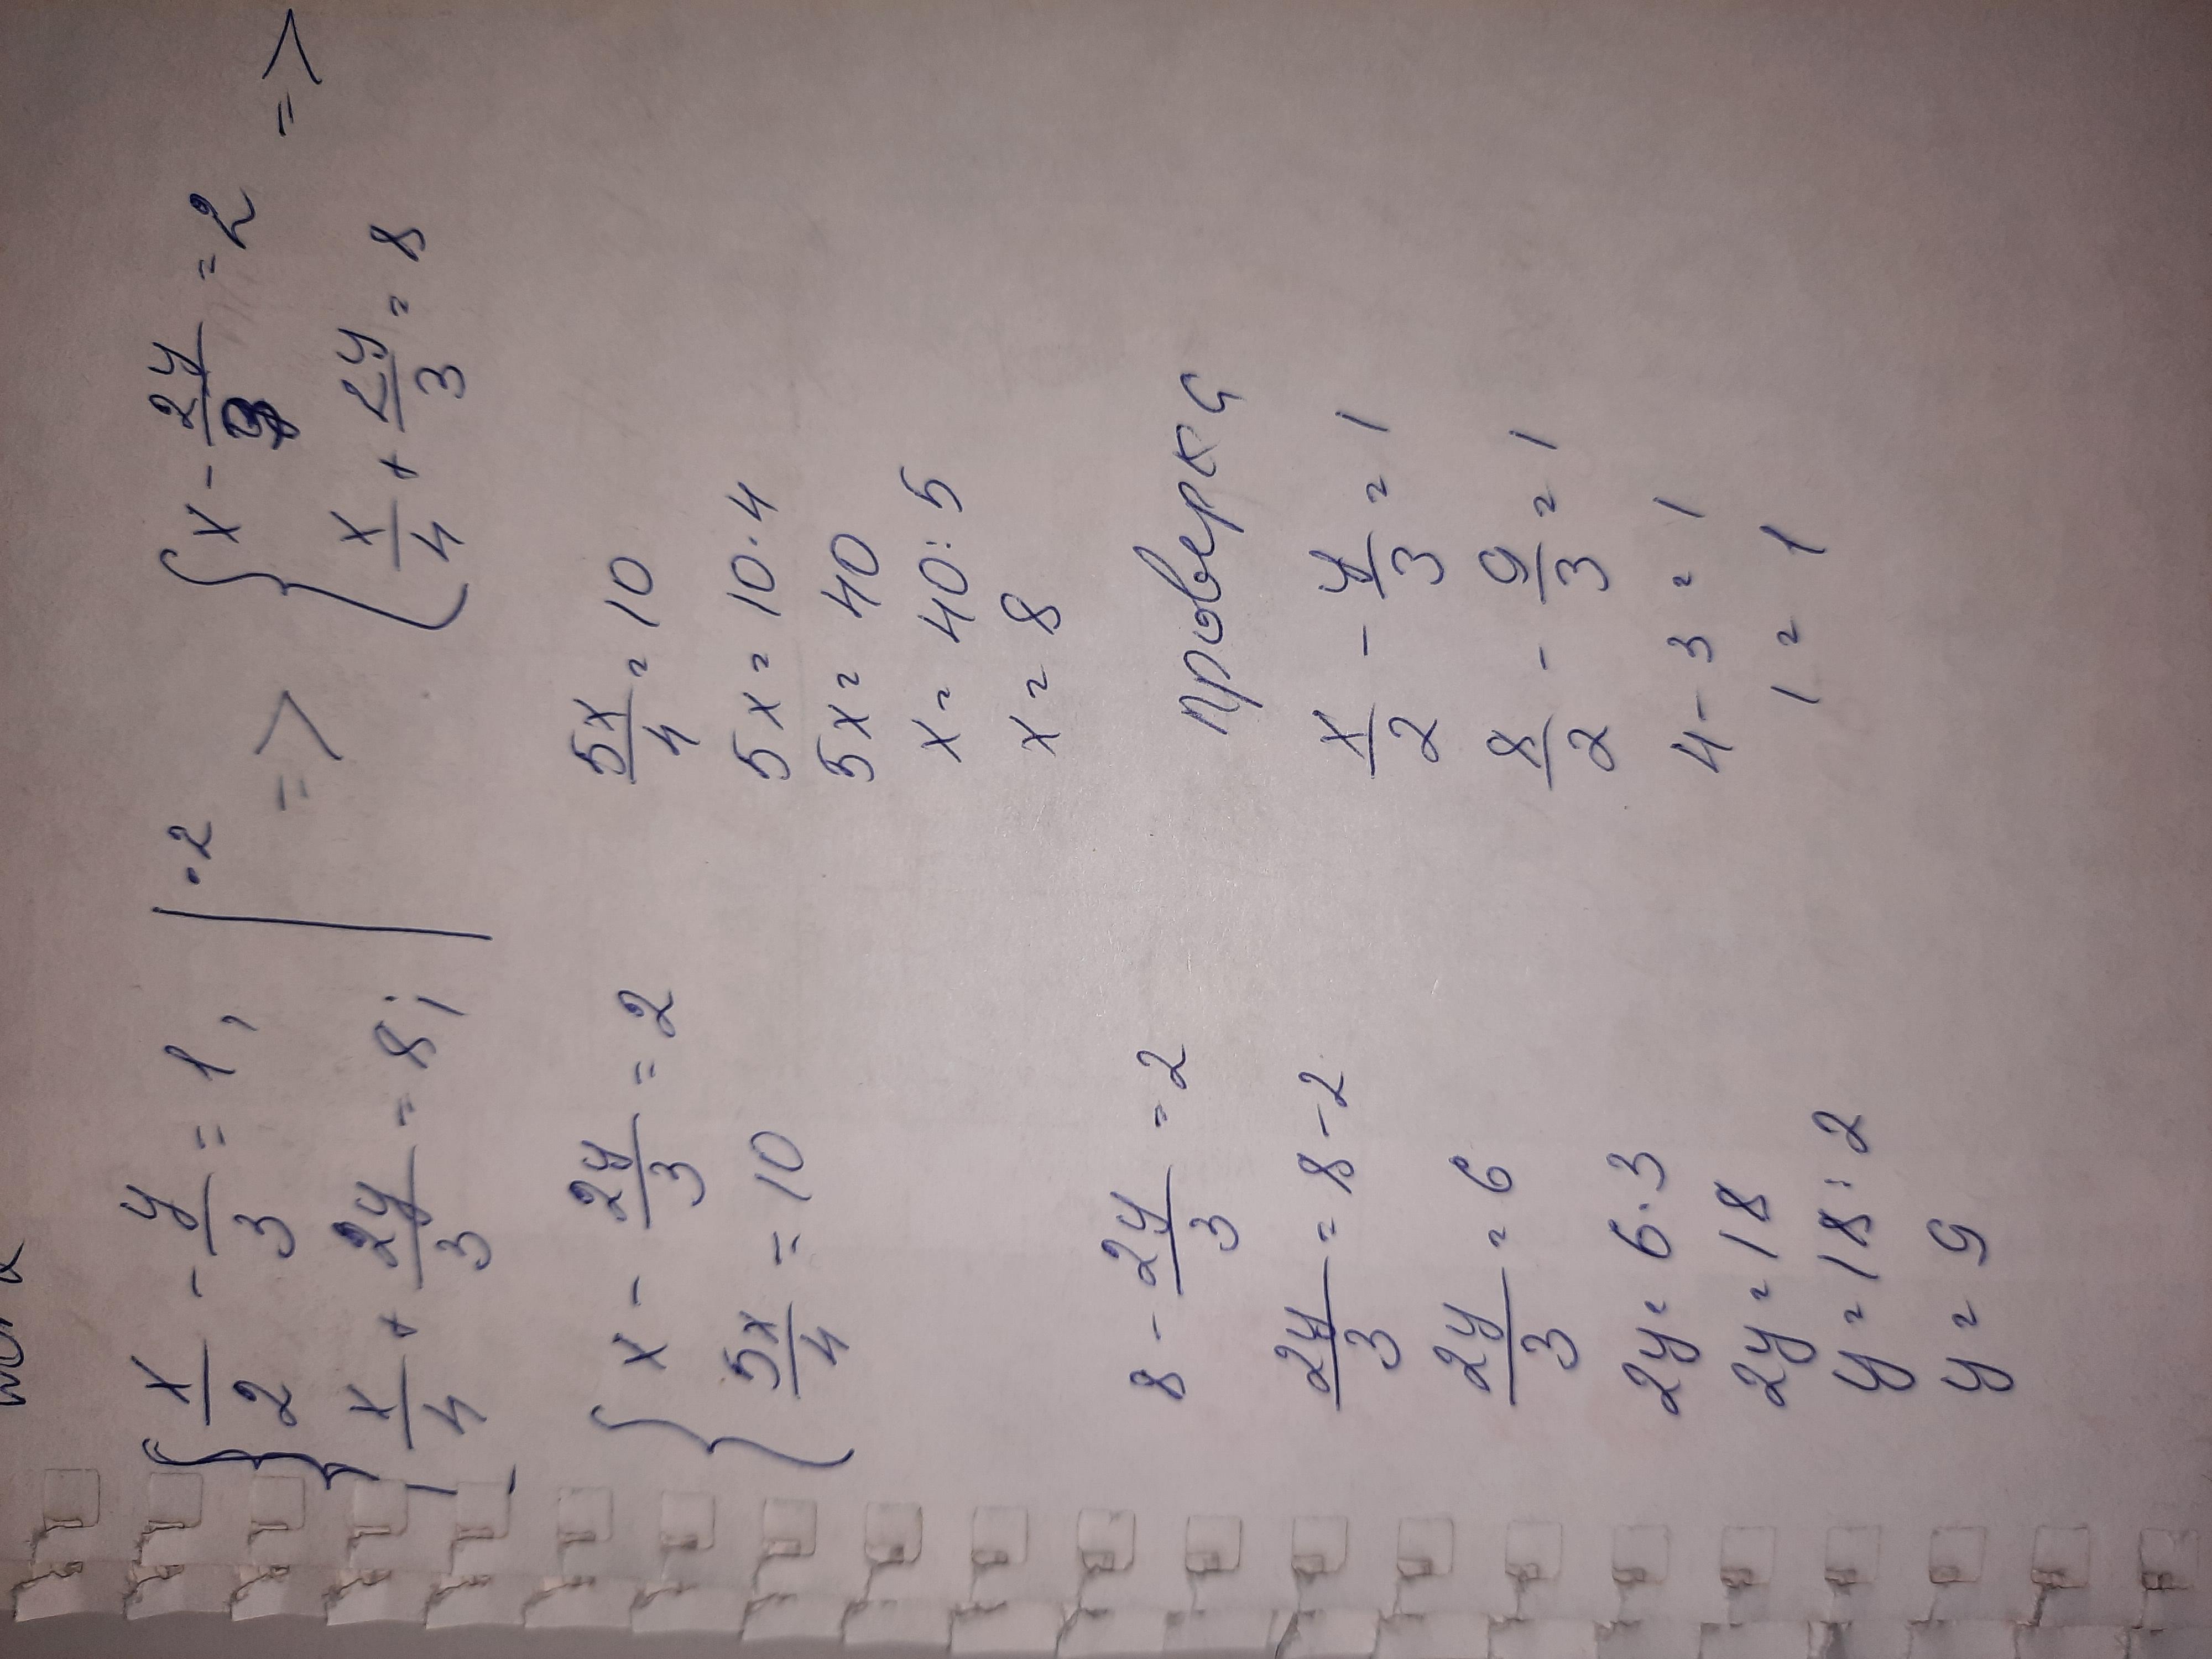 { x/2 - y/3 = 1, | ·2 => { x - 2y/3 = 2 =>
x/4 + 2y/3 = 8; x/4 + 2y/3 = 8
{ x - 2y/3 = 2
5x/4 = 10
5x/4 = 10
5x = 10·4
5x = 40
x = 40:5
x = 8
8 - 2y/3 = 2
2y/3 = 8-2
2y/3 = 6
2y = 6·3
2y = 18
y = 18:2
y = 9
проверка
x/2 - y/3 = 1
8/2 - 9/3 = 1
4-3=1
1=1